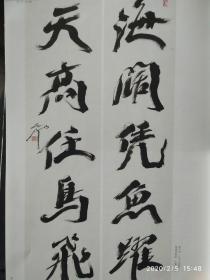 海阔凭鱼躍
天高任鳥飛
2020/2/5 15:48